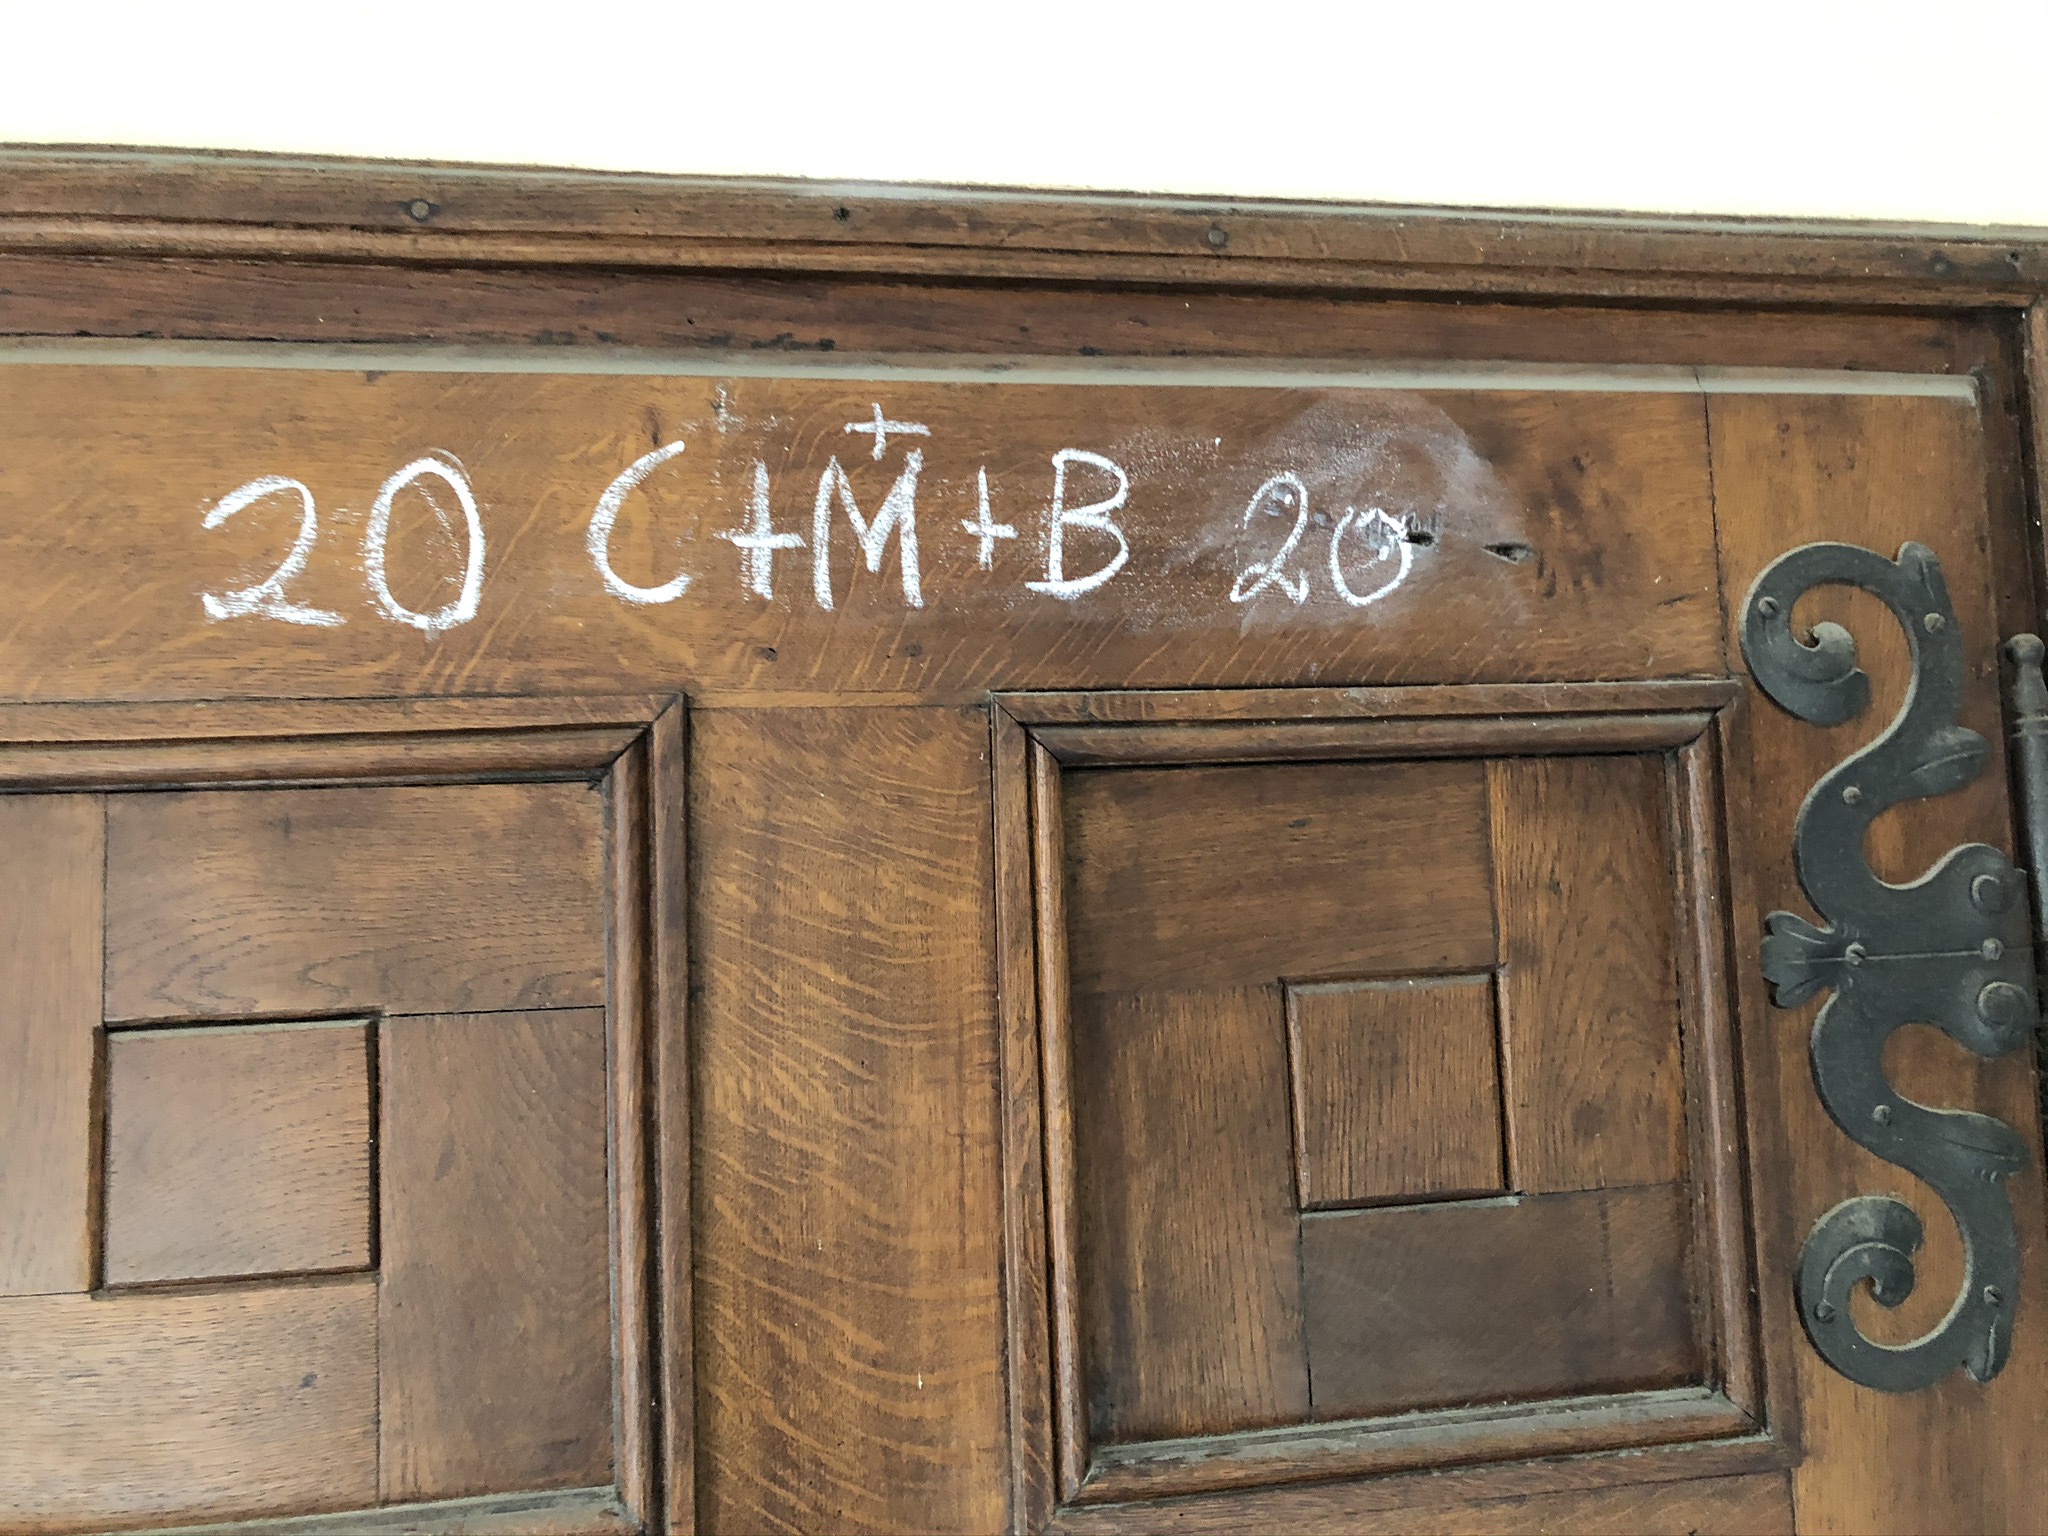 20 C+M+B 20